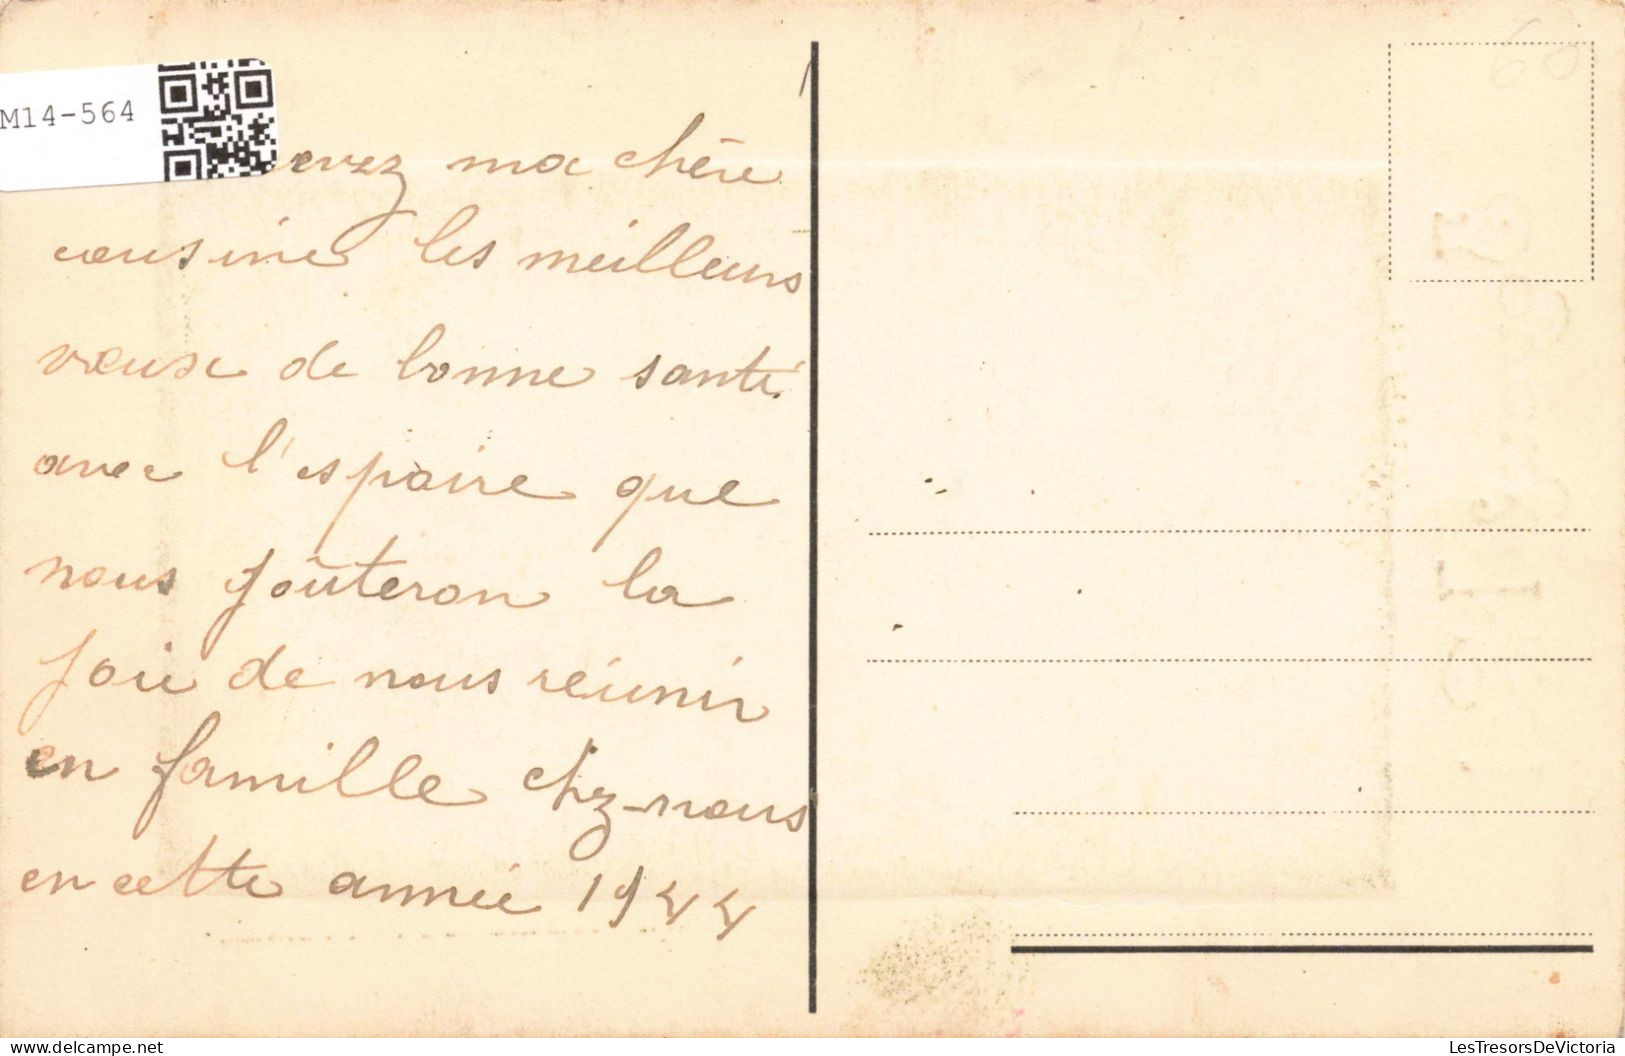 M14-564
evez ma chère
cousine les meilleurs
vœuse de bonne santé
avec l'espoire que
nous joûteron la
joie de nous réunir
en famille chz-nous
en cette année 1944
LesTresorsDeVictoria